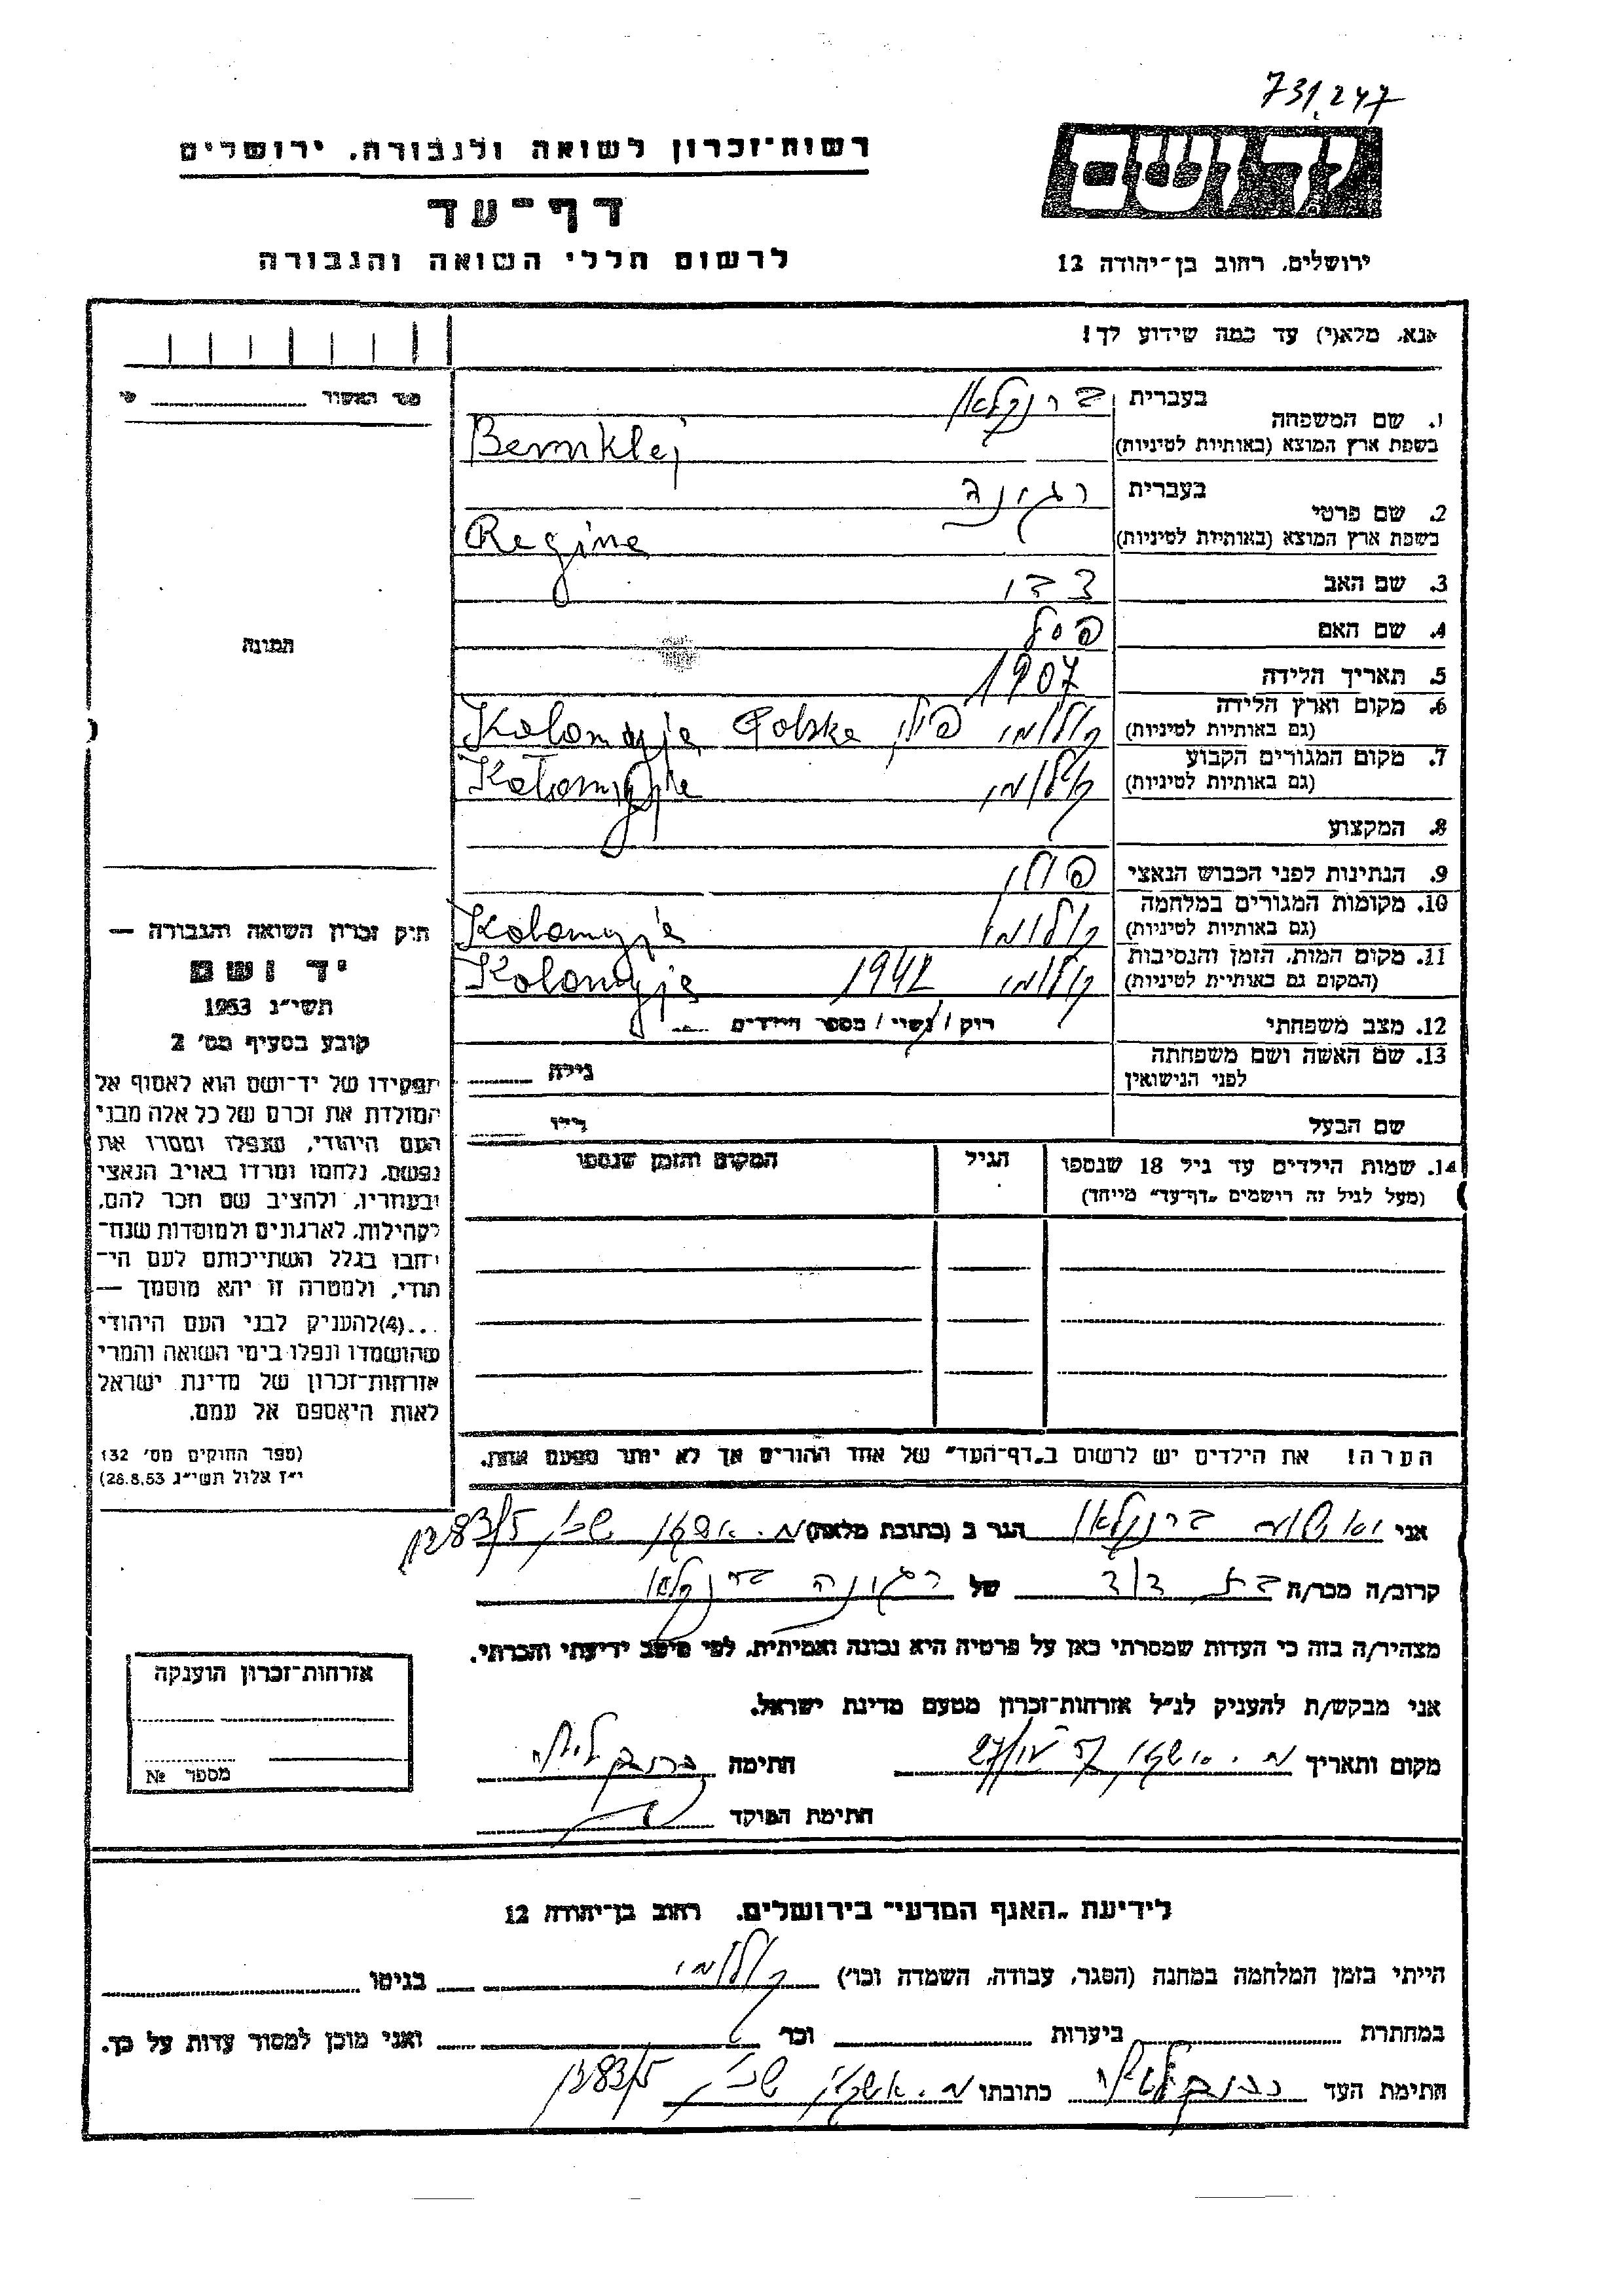 731.247
רשות־זכרון לשואה ולגבורה, ירושלים
דף־עד
לרשום חללי השואה והגבורה
יד ושם
ירושלים, רחוב בן־יהודה 12
אנא, מלא(י) עד כמה שידוע לך!
מס' האשור
1. שם המשפחה
בעברית
בשפת ארץ המוצא (באותיות לטיניות)
Bernklej
2. שם פרטי
בעברית רגינה
בשפת ארץ המוצא (באותיות לטיניות) Regine
3. שם האב
4. שם האם
5. תאריך הלידה 1907
6. מקום וארץ הלידה
(גם באותיות לטיניות)
קולומי פולין Kolomyja Polska
7. מקום המגורים הקבוע
(גם באותיות לטיניות)
קולומי Kołomyja
8. המקצוע
9. הנתינות לפני הכבוש הנאצי פולין
10. מקומות המגורים במלחמה
(גם באותיות לטיניות)
קולומי Kolomyja
11. מקום המות, הזמן והנסיבות
(המקום גם באותיות לטיניות)
קולומי 1942 Kolomyja
12. מצב משפחתי רוק / נשוי / מספר הילדים
13. שם האשה ושם משפחתה
לפני הנישואין
גילה
שם הבעל גילו
14. שמות הילדים עד גיל 18 שנספו
(מעל לגיל זה רושמים „דף־עד" מיוחד)
הגיל
המקום והזמן שנספו
הערה! את הילדים יש לרשום ב„דף־העד" של אחד ההורים אך לא יותר מפעם אחת.
התמונה
חיק זכרון השואה והגבורה —
יד ושם
תשי"ג 1953
קובע בסעיף מס' 2
תפקידו של יד־ושם הוא לאסוף אל
המולדת את זכרם של כל אלה מבני
העם היהודי, שנפלו ומסרו את
נפשם, נלחמו ומרדו באויב הנאצי
ובעוזריו, ולהציב שם וזכר להם,
לקהילות, לארגונים ולמוסדות שנח־
רבו בגלל השתייכותם לעם הי־
הודי, ולמטרה זו יהא מוסמך —
...(4) להעניק לבני העם היהודי
שהושמדו ונפלו בימי השואה והמרי
אזרחות־זכרון של מדינת ישראל
לאות היאספם אל עמם.
(ספר החוקים מס' 132
י"ז אלול תשי"ג 28.8.53)
אני
הגר ב (כתובת מלאה)
קרוב/ה מכר/ה בת דוד של רגינה
מצהיר/ה בזה כי העדות שמסרתי כאן על פרטיה היא נכונה ואמיתית, לפי מיטב ידיעתי והכרתי.
אני מבקש/ת להעניק לנ"ל אזרחות־זכרון מטעם מדינת ישראל.
מקום ותאריך
חתימה
חתימת הפוקד
אזרחות־זכרון הוענקה
מספר №
לידיעת „האגף המדעי" בירושלים, רחוב בן־יהודה 12
הייתי בזמן המלחמה במחנה (הסגר, עבודה, השמדה וכו') קולומי בגיטו
במחתרת ביערות וכו' ואני מוכן למסור עדות על כך.
חתימת העד
כתובתו